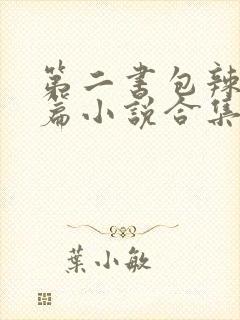 第二书包辣
篇小说合集
葉小敏